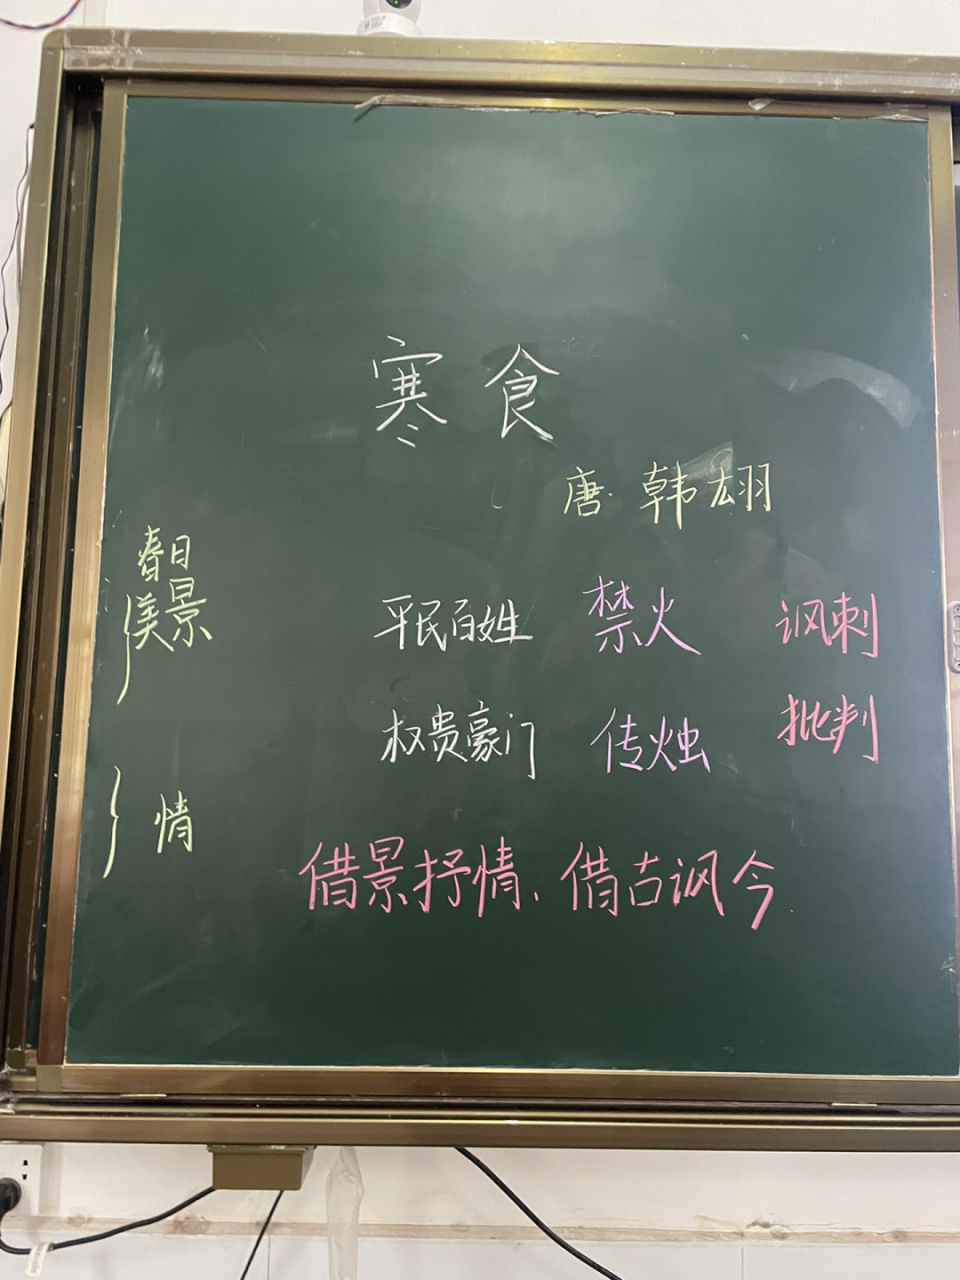 寒食
唐·韩翃
春日
美景
平民百姓 禁火 讽刺
权贵豪门 传烛 批判
情
借景抒情、借古讽今